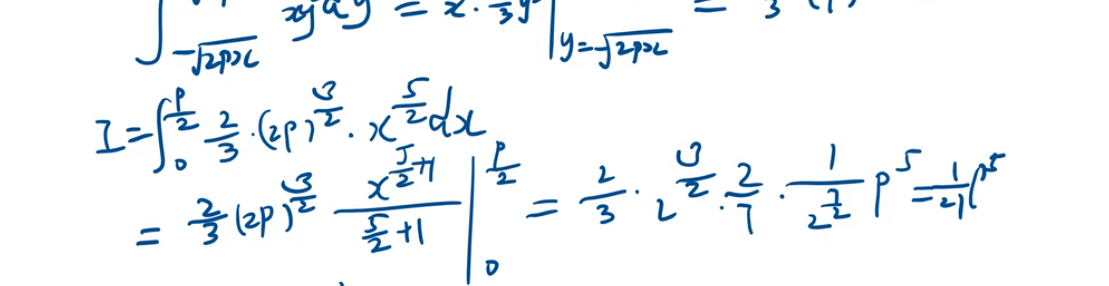 ∫_{-√2px} xy dy = x · 1/3 y |_{y=-√2px} = 3
I = ∫_0^{p/2} 2/3 · (2p)^{3/2} · x^{5/2} dx
= 2/3 (2p)^{3/2} x^{5/2+1}/(5/2+1) |_0^{p/2} = 2/3 · 2^{3/2} · 2/7 · 1/2^{7/2} p^5 = 1/21 p^5